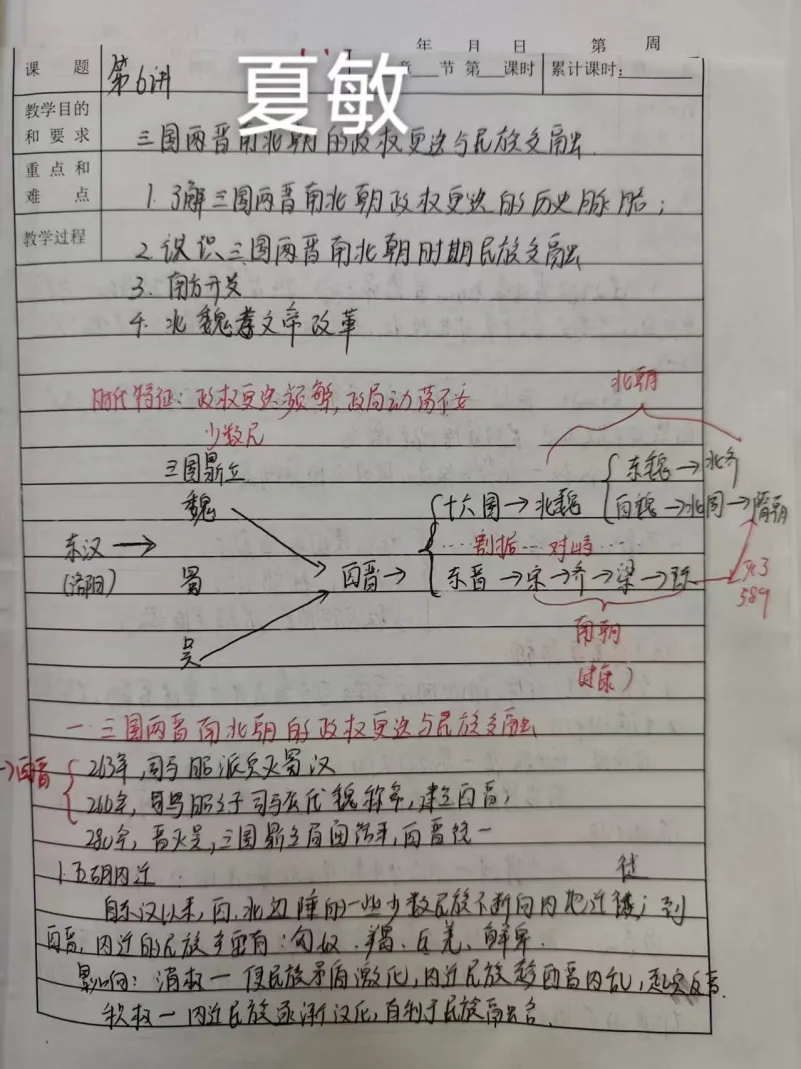 年 月 日 第 周
课 题 第6讲 章 节 第 课时 累计课时:
夏敏
教学目的和要求 三国两晋南北朝的政权更迭与民族交融
重点和难点 1.了解三国两晋南北朝政权更迭的历史脉络;
教学过程 2.认识三国两晋南北朝时期民族交融
3.南方开发
4.北魏孝文帝改革
时代特征:政权更迭频繁,政局动荡不安
北朝
少数民
三国鼎立
东魏→北齐
魏
十六国→北魏
西魏→北周→隋朝
东汉→
割据 对峙
(洛阳)
蜀
西晋→
东晋→宋→齐→梁→陈
589
吴
南朝
(建康)
一.三国两晋南北朝的政权更迭与民族交融
西晋
263年,司马昭派兵灭蜀汉
266年,司马昭之子司马炎代魏称帝,建立西晋;
280年,晋灭吴,三国鼎立局面结束,西晋统一
1.五胡内迁
自东汉以来,西、北边陲的一些少数民族不断向内地迁徙;到
西晋,内迁的民族主要有:匈奴、羯、氐、羌、鲜卑.
影响:消极一使民族矛盾激化,内迁民族趁西晋内乱,起兵反晋.
积极一内迁民族逐渐汉化,有利于民族交融.